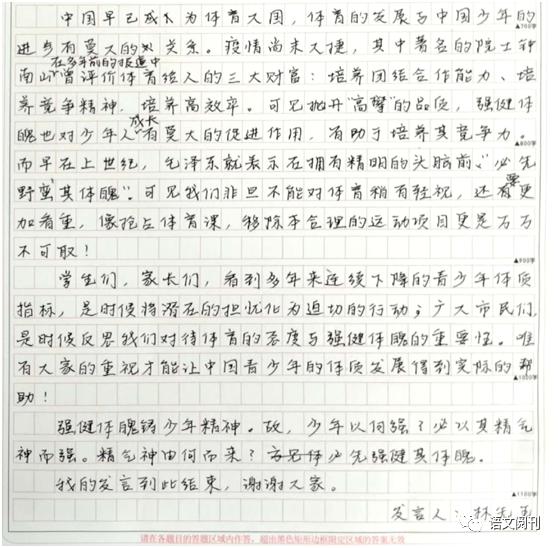 中国早已成为体育大国，体育的发展与中国少年的
▲700字
进步有莫大的关系。疫情尚未大捷，其中著名的院士钟
在多年前的报道中
南山曾评价体育给人的三大财富：培养团结合作能力、培
养竞争精神、培养高效率。可见抛开"高擎"的品质，强健体
成长
魄也对少年人有莫大的促进作用，有助于培养其竞争力。
▲800字
而早在上世纪，毛泽东就表示在拥有精明的头脑前，"必先
野蛮其体魄"。可见我们非但不能对体育稍有轻视，还要更
加看重，像抢占体育课，移除本合理的运动项目更是万万
不可取！
▲900字
学生们，家长们，看到多年来连续下降的青少年体质
指标，是时候将潜在的担忧化为迫切的行动；广大市民们，
是时候反思我们对待体育的态度与强健体魄的重要性。唯
有大家的重视才能让中国青少年的体质发展得到实际的帮
▲1000字
助！
强健体魄铸少年精神。故，少年以何强？必以其精气
神而强。精气神由何而来？必先强健其体魄。
我的发言到此结束，谢谢大家。
▲1100字
发言人 林先生
请在各题目的答题区域内作答，超出黑色矩形边框限定区域的答案无效
语文阅刊